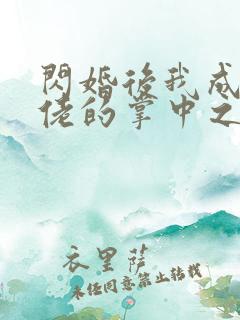 閃婚後我成
佬的掌中之
衣里薩
未經同意禁止轉載